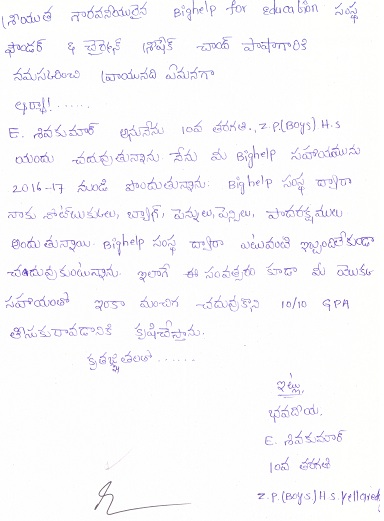 శ్రీయుత గౌరవనీయులైన Bighelp for education సంస్థ
ఫౌండర్ & చైర్మేన్ చాంద్ పాషాగారికి
నమస్కరించి వ్రాయునది ఏమనగా
ఆర్యా!......
E. శివకుమార్ అనునేను 10వ తరగతి., Z.P.(Boys).H.S
యందు చదువుతున్నాను. నేను మీ Bighelp సహాయమును
2016-17 నుండి పొందుతున్నాను. Bighelp సంస్థ ద్వారా
నాకు నోట్‌బుకులు, బ్యాగ్, పెన్నులు, పెన్సిలు, పాదరక్షములు
అందుతున్నాయి. Bighelp సంస్థ ద్వారా ఎటువంటి ఇబ్బందిలేకుండా
చదువుకుంటున్నాను. ఇలాగే ఈ సంవత్సరం కూడా మీ యొక్క
సహాయంతో ఇంకా మంచిగ చదువుకొని 10/10 GPA
తీసుకురావడానికి కృషిచేస్తాను.
కృతజ్ఞతలతో ......
ఇట్లు,
భవదీయ,
E. శివకుమార్
10వ తరగతి
Z.P.(Boys) H.S. Yellareddy